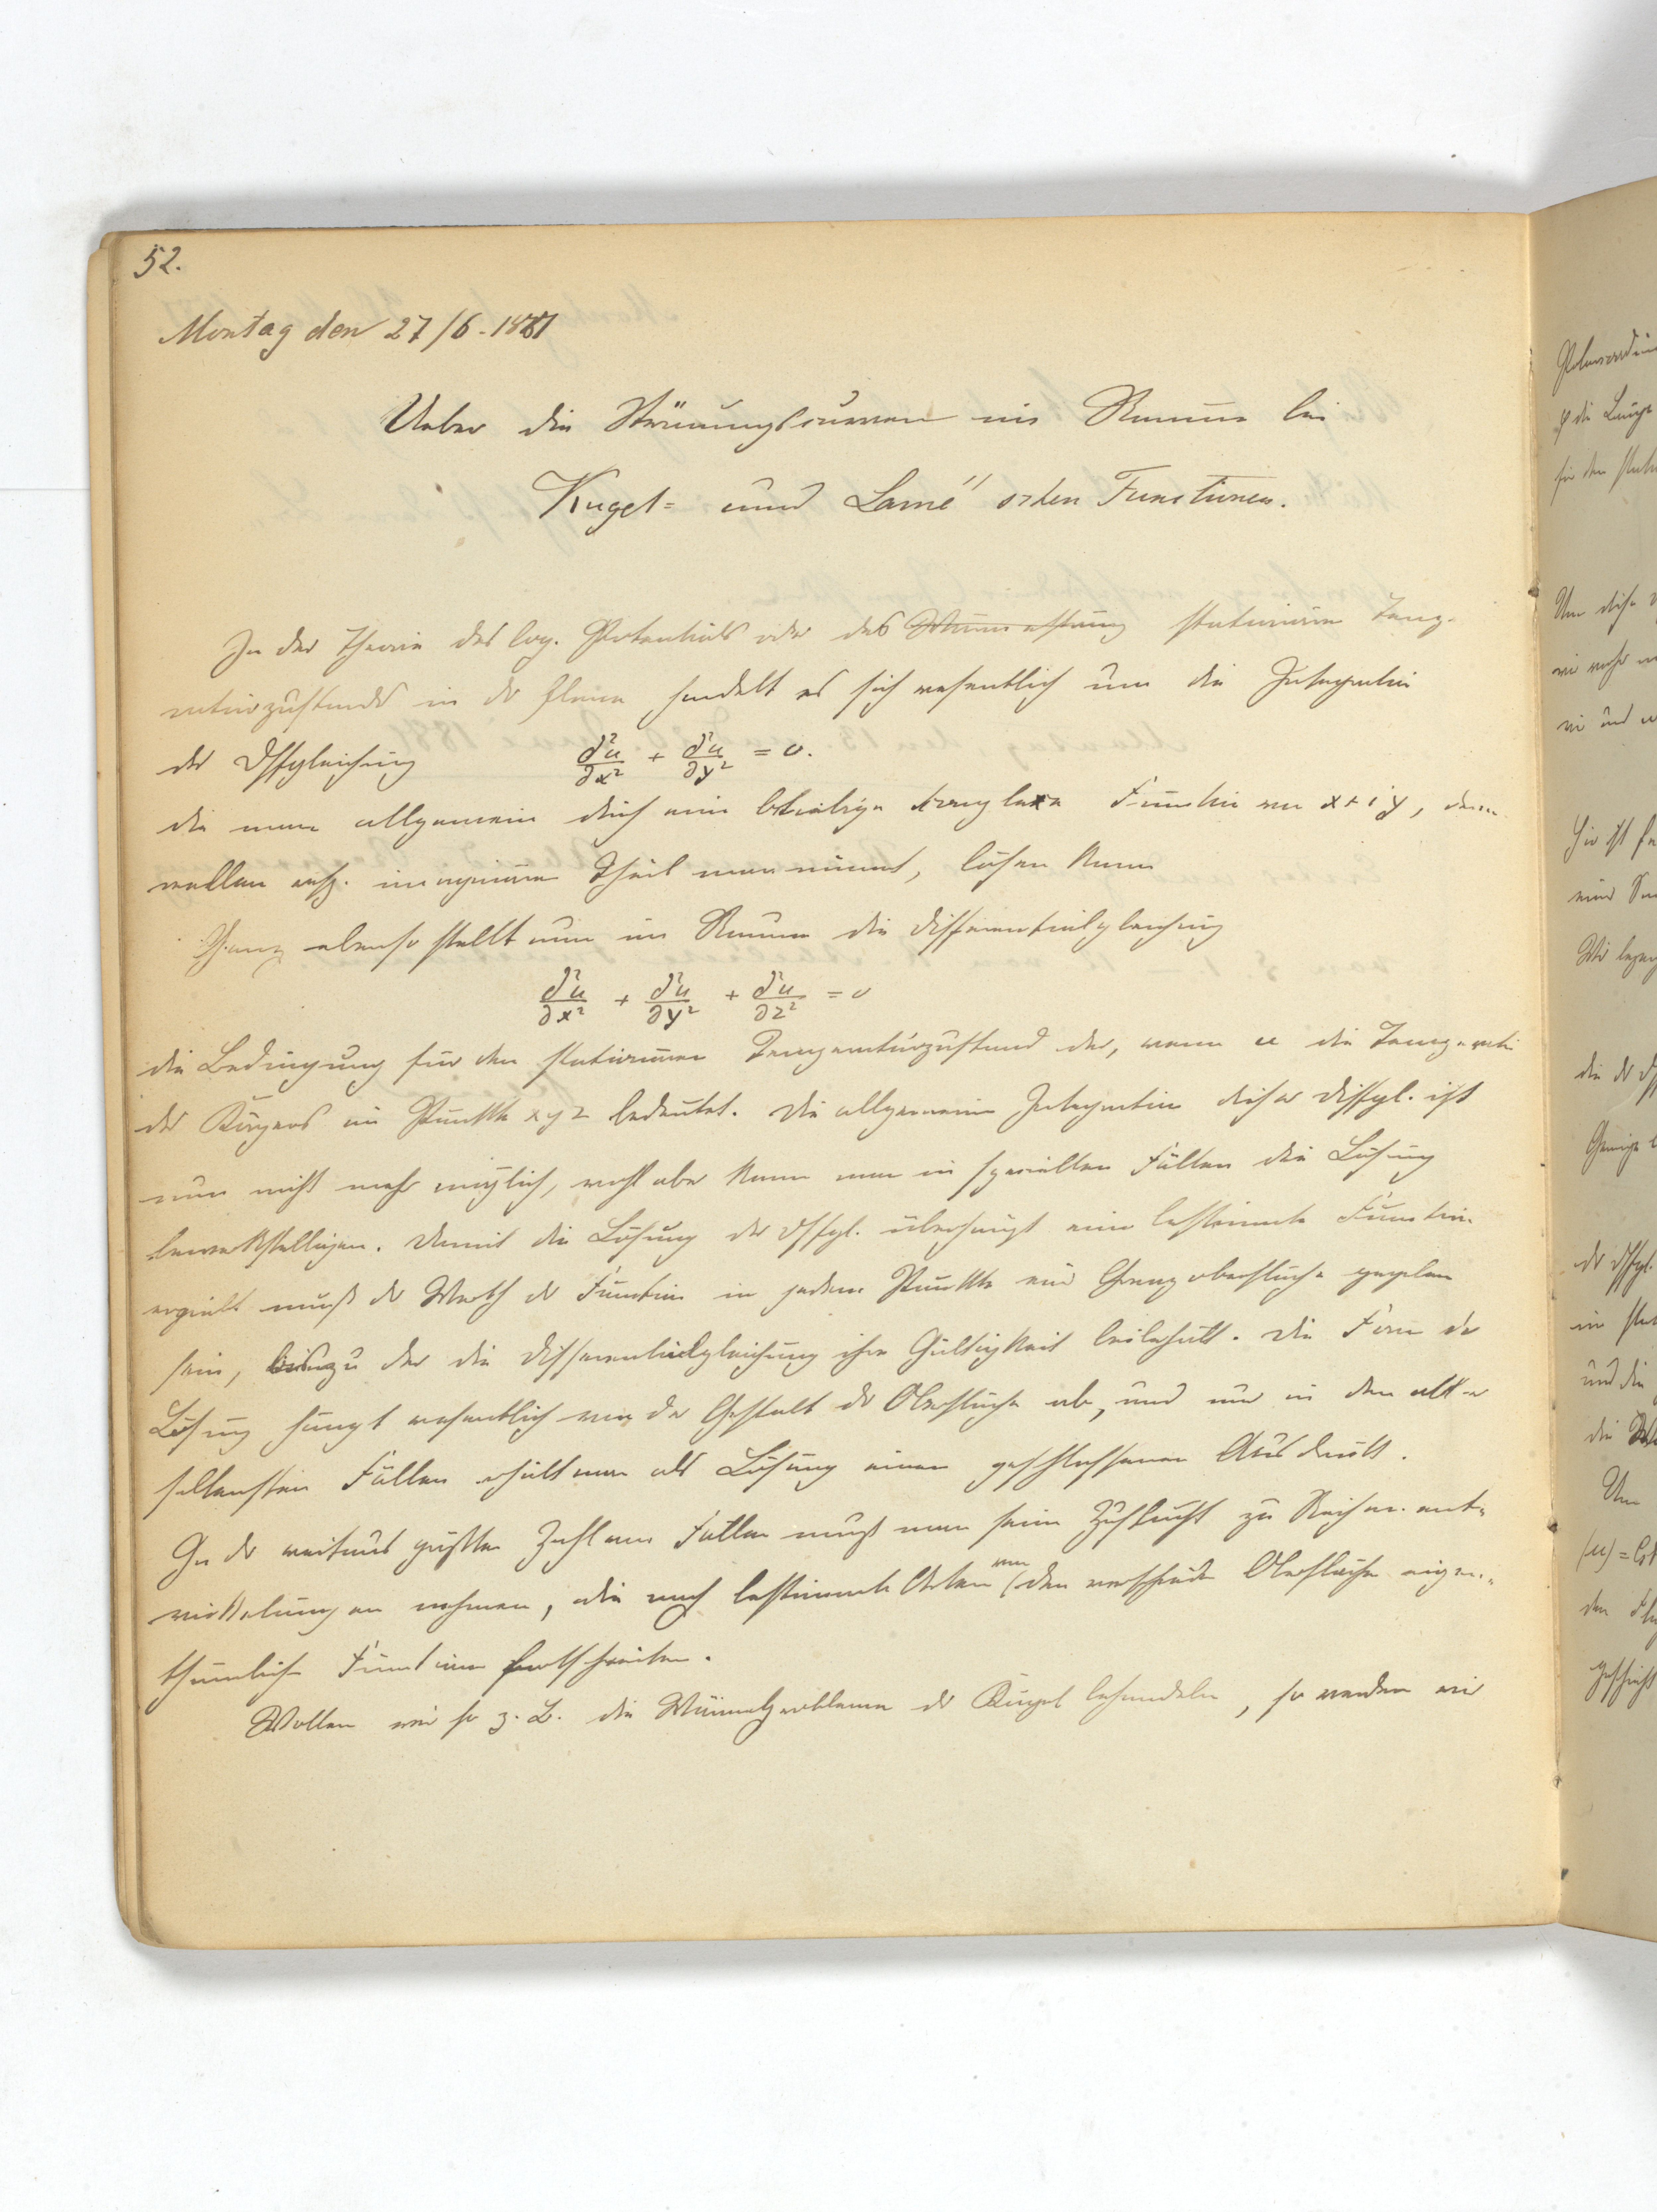 52.
Montag den 27/6. 1881
Ueber die Strömungscurven im Raume bei
Kugel= und Lamé'schen Functionen.
In der Theorie des log. Potentials oder des stationären Temp-
eraturzustands in der Ebene handelt es sich wesentlich um die Integration
der Dffgleichung ∂²u/∂x² + ∂²u/∂y² = 0.
die man allgemein durch eine beliebige complexe Function von x+iy, deren
reellen resp. imaginären Theil man nimmt, lösen kann
Ganz ebenso stellt nun im Raume die Differentialgleichung
∂²u/∂x² + ∂²u/∂y² + ∂²u/∂z² = 0
die Bedingung für den stationären Temperaturzustand dar, wenn u die Temperatur
des Körpers im Punkte xyz bedeutet. Die allgemeine Integration dieser Diffgl. ist
nun nicht mehr möglich, wohl aber kann man in speciellen Fällen die Lösung
bewerkstelligen. Damit die Lösung der Dffgl. überhaupt eine bestimmte Function
ergiebt muß der Werth der Function in jedem Punkte einer Grenzoberfläche gegeben
sein, bis zu der die Differentialgleichung ihre Gültigkeit beibehält. Die Form der
Lösung hängt wesentlich von der Gestalt der Oberfläche ab, und nur in den aller
seltensten Fällen erhält man als Lösung einen geschlossenen Ausdruck.
In der weitaus größten Zahl von Fällen muß man seine Zuflucht zu Reihenent-
wickelungen nehmen, die nach bestimmten Arten von den verschiedenen Oberflächen eigen-
thümlichen Functionen fortschreiten.
Wollen wir so z. B. die Wärmeprobleme der Kugel behandeln, so werden wir